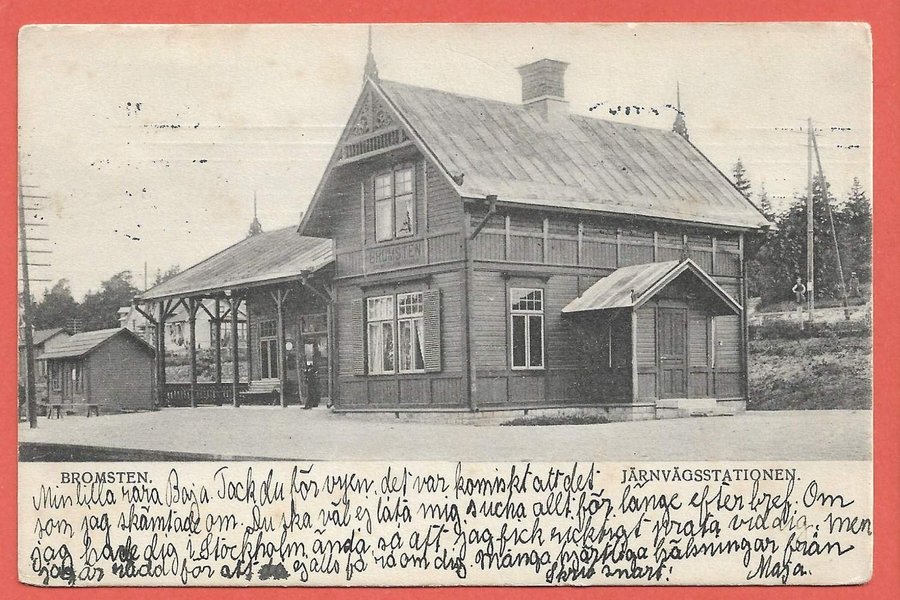 BROMSTEN
BROMSTEN. JÄRNVÄGSSTATIONEN.
Min lilla rara Baja. Tack du för vyen, det var komiskt att det
som jag skämtade om. Du ska väl ej låta mig sucka allt för länge efter bref. Om
jag hade dig i Stockholm ända, så att jag fick riktigt prata vid dig, men
jag är rädd för att ej alls få rå om dig. Många hjärtliga hälsningar från
Skriv snart! Maja.